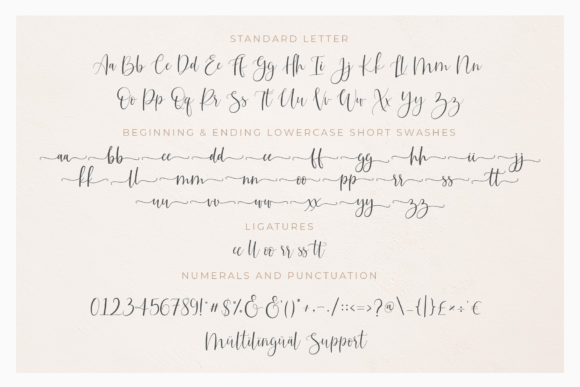 STANDARD LETTER
Aa Bb Cc Dd Ee Ff Gg Hh Ii Jj Kk Ll Mm Nn
Oo Pp Qq Rr Ss Tt Uu Vv Ww Xx Yy Zz
BEGINNING & ENDING LOWERCASE SHORT SWASHES
aa bb cc dd ee ff gg hh ii jj
kk ll mm nn oo pp rr ss tt
uu vv ww xx yy zz
LIGATURES
ee ll oo rr ss tt
NUMERALS AND PUNCTUATION
0123456789!"#$%&&'()*+,-./:;<=>?@\_{|}£×÷'€
Multilingual Support